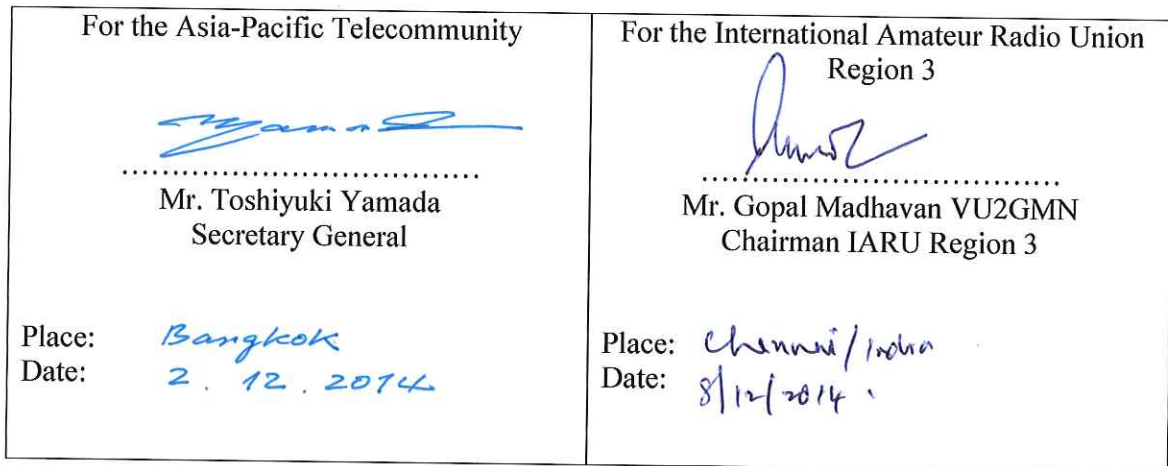 For the Asia-Pacific Telecommunity
Yamada
....................................
Mr. Toshiyuki Yamada
Secretary General
Place: Bangkok
Date: 2. 12. 2014
For the International Amateur Radio Union
Region 3
....................................
Mr. Gopal Madhavan VU2GMN
Chairman IARU Region 3
Place: Chennai/India
Date: 8/12/2014.